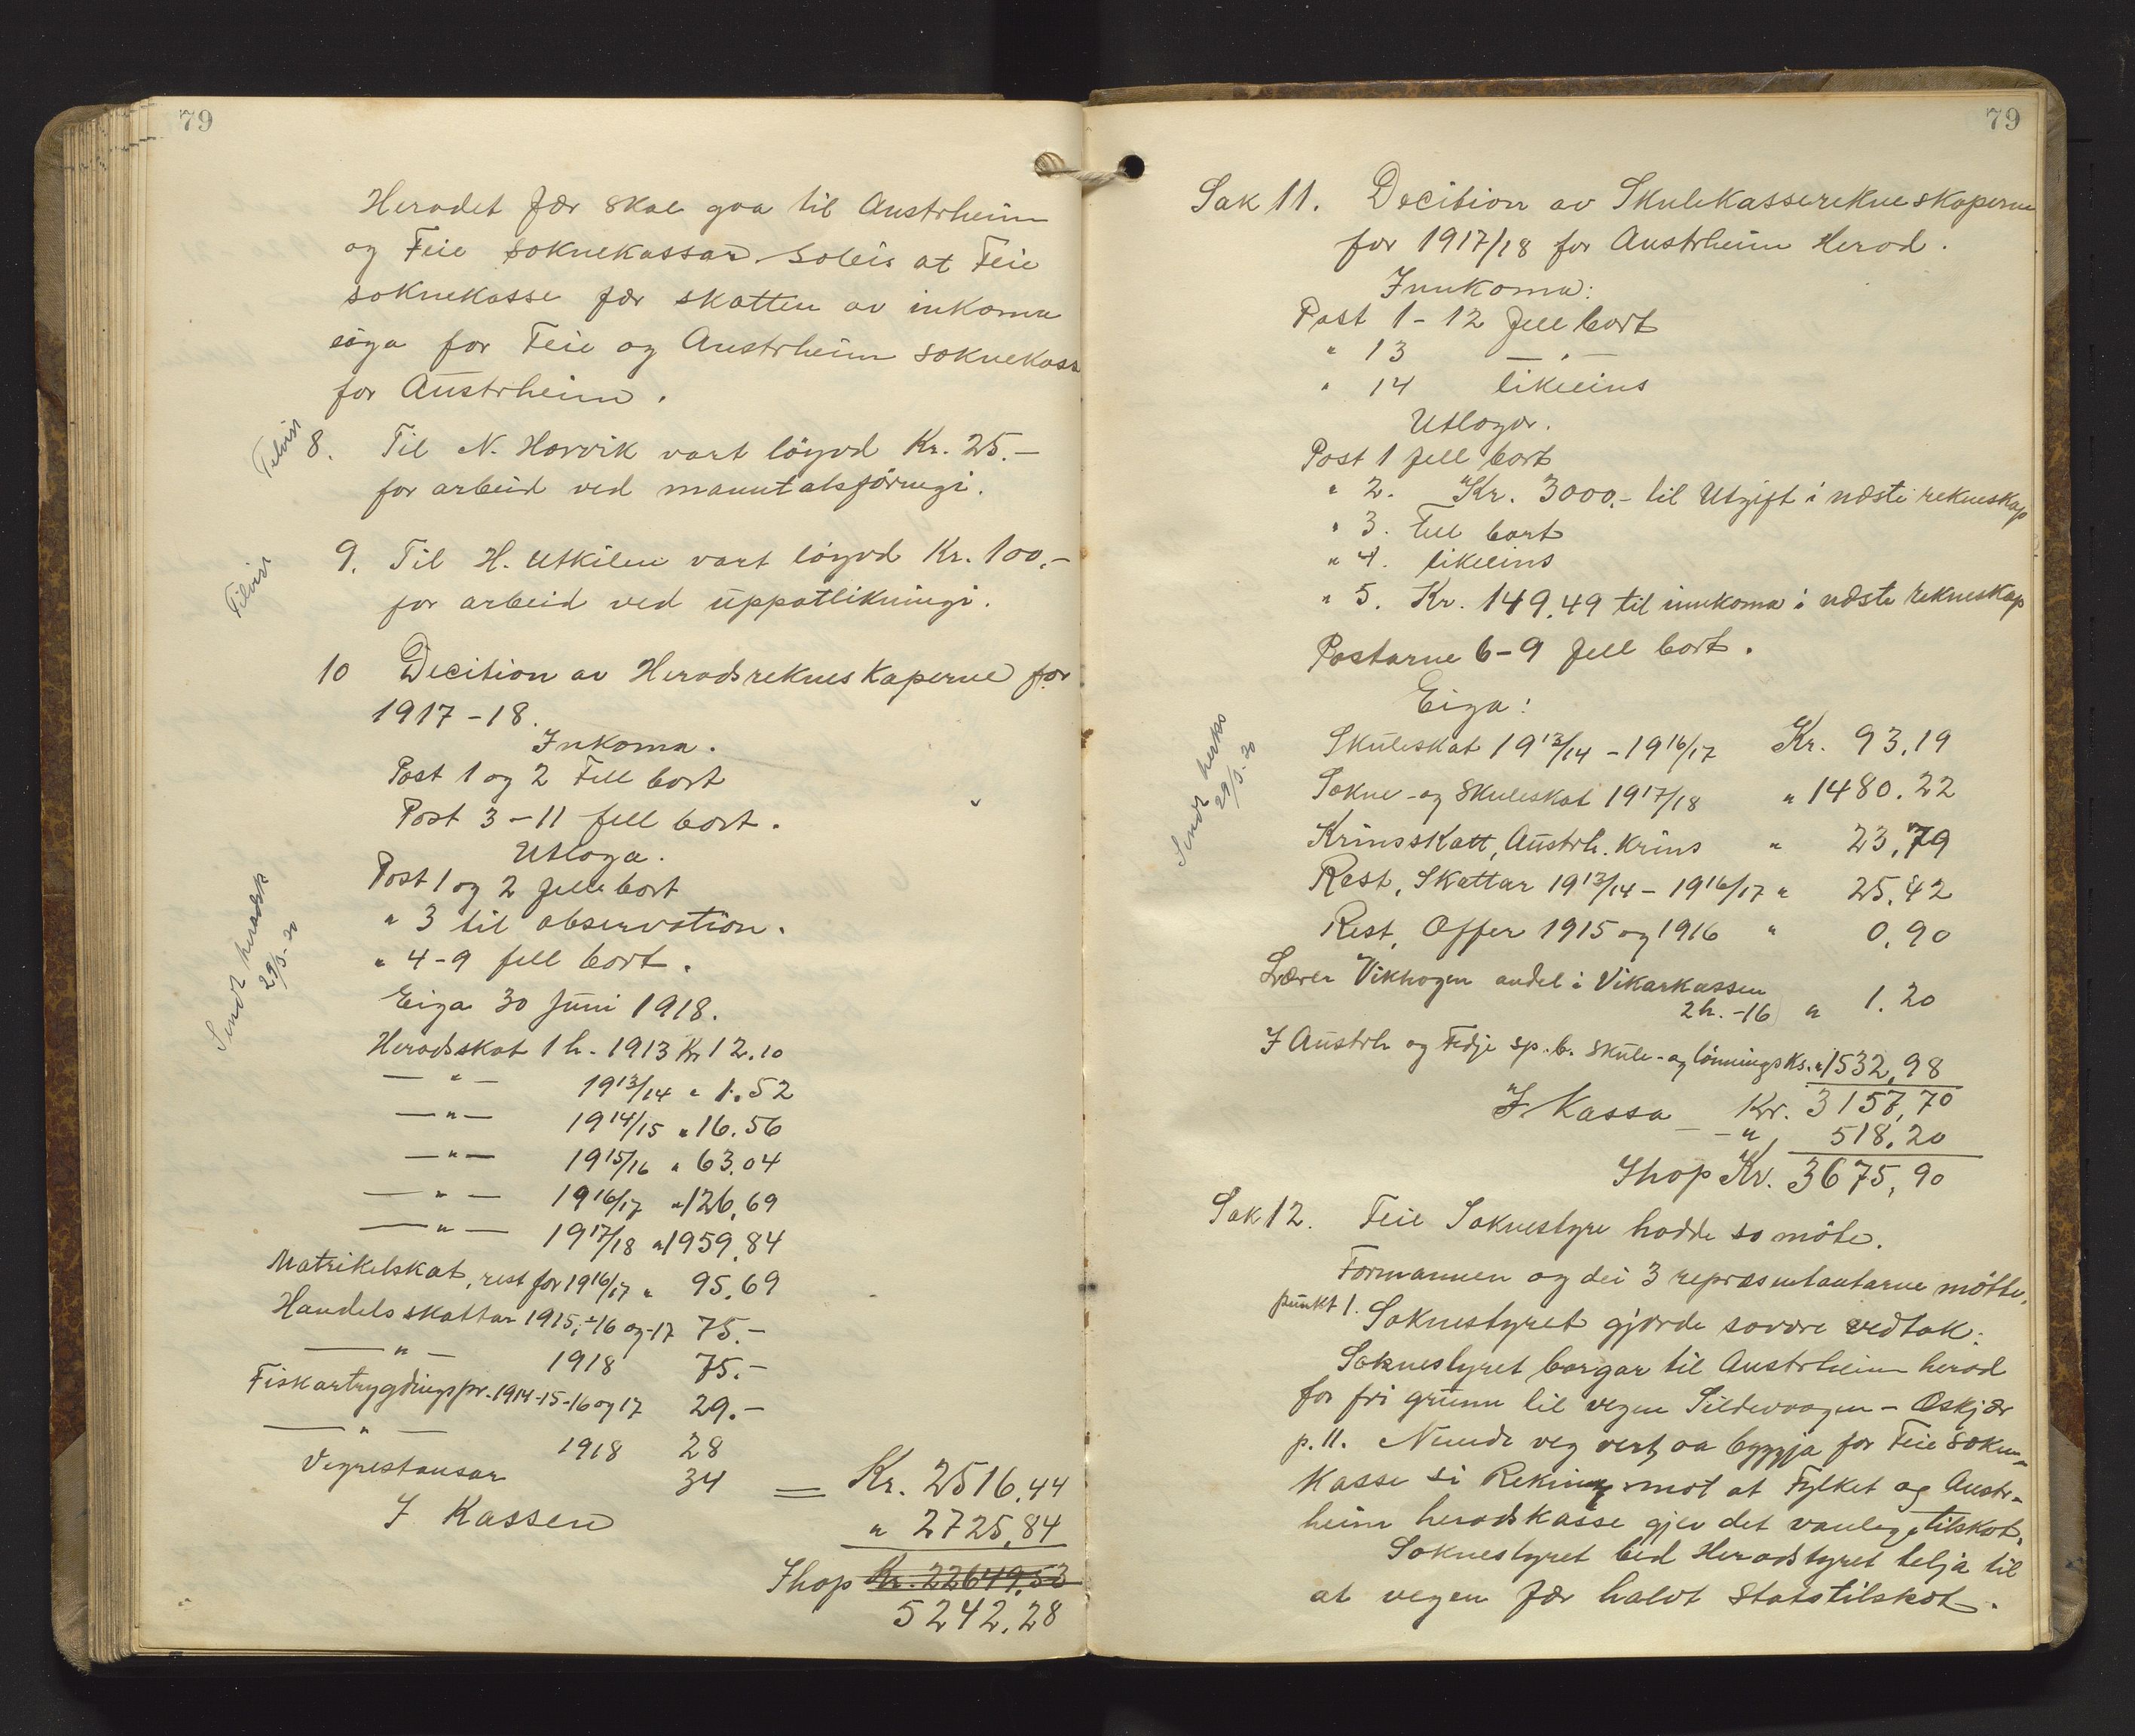 79
Heradet fær skal gaa til Austrheim
og Feie soknekassar. Soleis at Feie
soknekasse fær skatten av inkoma
eiga for Feie og Austrheim soknekassa
for Austrheim.
Tilvist
8. Til N. Horvik vart löyvd Kr. 25.-
for arbeid ved manntalsförnegi.
Tilvist
9. Til H. Utkilen vart löyvd Kr. 100.-
for arbeid ved uppatlikningi.
10 Decition av Heradsrekneskaperne for
1917-18.
Inkoma.
Post 1 og 2 Fell bort
Post 3-11 fell bort.
Utloga.
Post 1 og 2 fell bort
" 3 til observation.
" 4-9 fell bort.
Sendt heradsk
29/3-20
Eiga 30 Juni 1918.
Heradsskat 1 h. 1913 Kr 12.10
— " — 1913/14 " 1.52
— " — 1914/15 " 16.56
— " — 1915/16 " 63.04
— " — 1916/17 " 126,69
— " — 1917/18 " 1959.84
Matrikelskat, rest for 1916/17 " 95.69
Handelsskattar 1915, -16 og -17 75.-
— " — 1918 75.-
Fiskartrygdingspr. 1914-15-16 og 17 29.-
— " — 1918 28
Vegrestansar 34 = Kr. 2516.44
I Kassen " 2725,84
Ihop Kr. 22649,53
5242,28
79
Sak 11. Decition av Skulekasserekneskaperne
for 1917/18 for Austrheim Herad.
Innkoma:
Post 1-12 fell bort
" 13 — " —
" 14 likeeins
Utlogor.
Post 1 fell bort
" 2. Kr. 3000.- til Utgift i næste rekneskap
" 3. fell bort
" 4. likeeins
" 5. Kr. 149.49 til innkoma i næste rekneskap
Postarne 6-9 fell bort.
Eiga:
Sendt herks
29/3-20
Skuleskat 1913/14 - 1916/17 Kr. 93,19
Sokne- og Skuleskat 1917/18 " 1480.22
Krinsskatt, Austrh. krins " 23,79
Rest, Skattar 1913/14 - 1916/17 " 25,42
Rest, Offer 1915 og 1916 " 0,90
Lærer Vikhagen andel i Vikarkassen
2 h. -16 " 1.20
I Austrh og Fedje sp.b. skule- og lönningsks. " 1532,98
Kr. 3157,70
I Kassa — " 518,20
Ihop Kr. 3675,90
Sak 12. Feie Soknestyre hadde so möte.
Formannen og dei 3 repræsentantarne mötte.
punkt 1. Soknestyret gjorde sovore vedtak:
Soknestyret borgar til Austrheim herad
for fri grunn til vegen Sildevaagen - Oskjær
p. 11. Nemnde veg vert aa byggja for Feie sokne-
kasse si Rekning mot at Fylket og Austr-
heim heradskasse gjev det vanlege tilskot.
Soknestyret bed Heradstyret telja til
at vegen fær halvt Statstilskot.